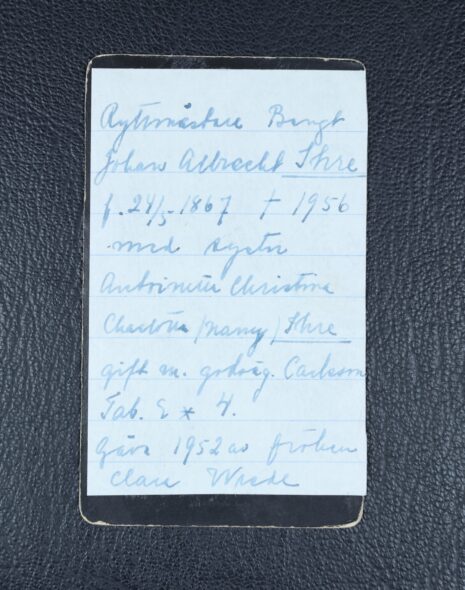 Ryttmästare Bengt
Johan Albrecht Ihre
f. 24/5-1867 † 1956
med syster
Antoinette Christina
Charlotta (Nanny) Ihre
gift m. godsäg. Carlsson
Tab. E * 4.
Gåva 1952 av fröken
Clara Wrede